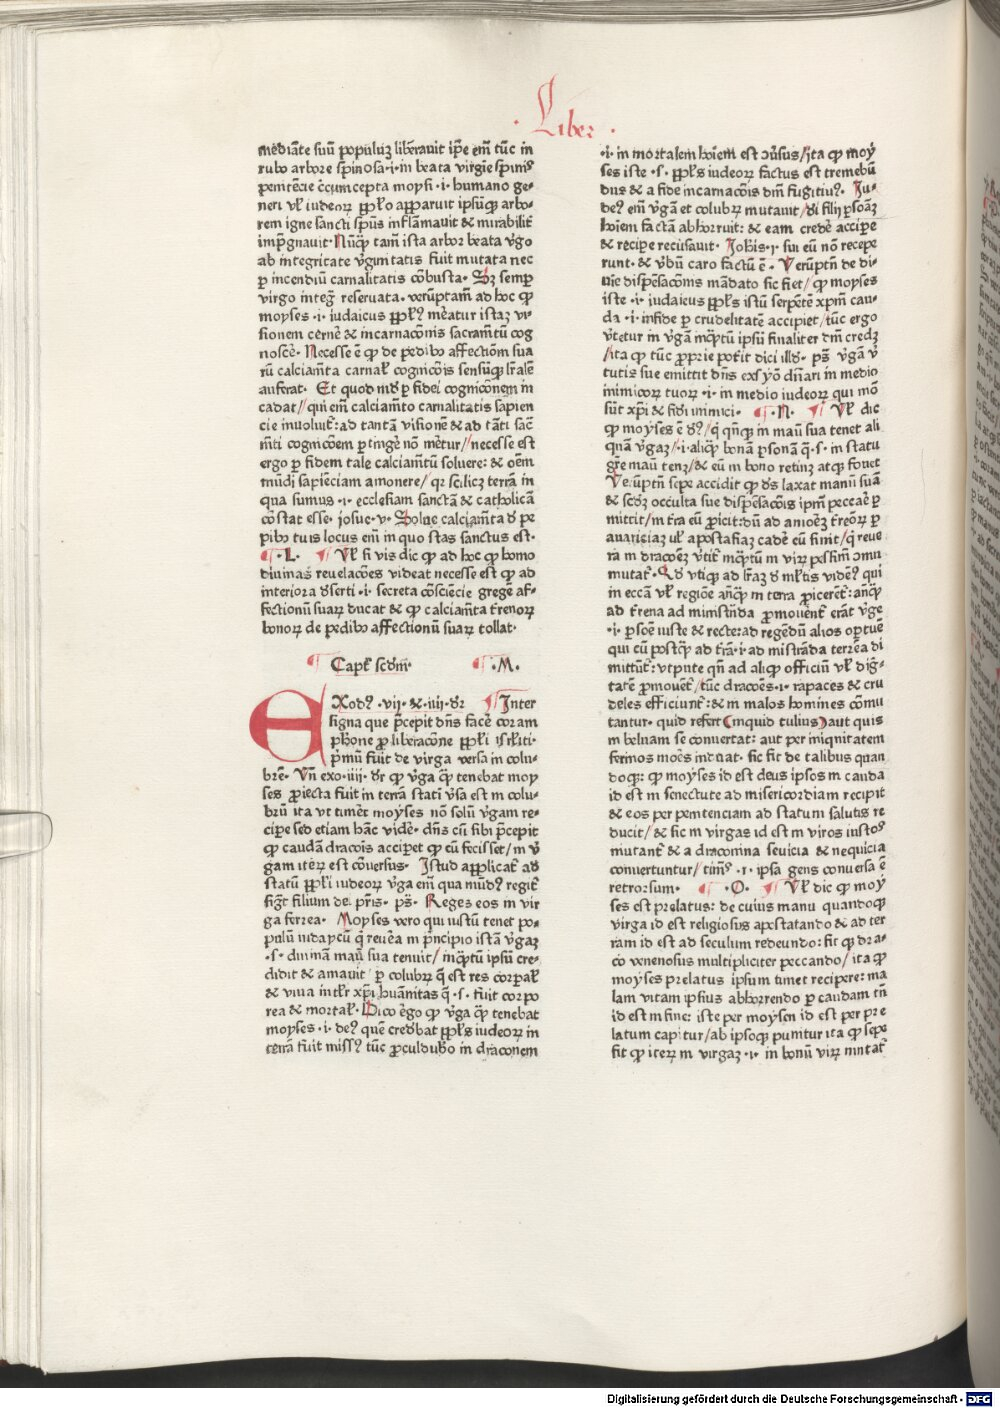 · Liber ·
mediāte suū populuȝ liberauit ip̄e em̄ tūc in
rubo arbore spinosa·i·in beata virgīe spinis
penitēcie c̄cumcepta moysi ·i· humano ge-
neri vl̓ iudeoꝝ pp̄lo apparuit ipsūqꝫ arbo-
rem igne sancti spūs inflāmauit & mirabilit͛
imp̄gnauit· Nūqͥꝫ tam̄ ista arbor beata v͛go
ab integritate v͛ginitatis fuit mutata nec
ꝑ incendiū carnalitatis cōbusta· Sꝫ semꝑ
virgo integ͛ reseruata· verūptam̄ ad hoc ꝙ
moyses ·i· iudaicus pp̄lꝰ meātur istaꝫ vi-
sionem cernē & incarnacōnis sacram̄tū cog
noscē· Necesse ē ꝙ de pedibꝰ affectionū sua
rū calciam̄ta carnal̓ cognicōis sensūqꝫ lr̄ale
auferat· Et quod nudꝰ ꝑ fidei cognicōnem in
cadat/ qui em̄ calciam̄to carnalitatis sapien
cie inuoluit͛: ad tantā visionē & ad tāti sac̄
m̄ti cognicōem ꝑtingē nō mētur/ necesse est
ergo ꝑ fidem tale calciam̄tū soluere: & oēm
mūdi sapiēciam amonere/ qꝛ scilicꝫ terra in
qua sumus ·i· ecclesiam sanctā & catholicā
cōstat esse· josue·v· Solue calciam̄ta d̓ pe
dibꝰ tuis locus em̄ in quo stas sanctus est·
¶·L· ¶ Vl̓ si vis dic ꝙ ad hoc ꝙ homo
diuinas reuelacōes videat necesse est ꝙ ad
interiora d̓serti ·i· secreta cōsciēcie gregē af-
fectionū suaꝝ ducat & ꝙ calciam̄ta t͛renoꝝ
bonoꝝ de pedibꝰ affectionū suaꝝ tollat·
¶ Capl̓ scd̄m· ¶·M·
EXodꝰ ·vij·&·iiij·dr̄ ¶Inter
signa que p̄cepit dn̄s facē coram
phaōne ꝓ liberacōne pp̄li isrl̓iti·
p̄mū fuit de virga versa in colu-
brē· Vn̄ exo·iiij· dr̄ ꝙ v͛ga qᷓ tenebat moy
ses ꝓiecta fuit in terrā stati v͛sa est in colu-
brū ita vt timēt moyses nō solū v͛gam re-
cipe sed etiam hāc vidē· dn̄s cū sibi p̄cepit
ꝙ caudā draconis acciperet ꝙ cū fecisset/ in v͛
gam iteꝝ est cōuersus· Istud applicat͛ ad
statū pp̄li iudeoꝝ v͛ga em̄ qua mūdꝰ regit͛
sigͭ filium dei pr̄is· ps̄· Reges eos in vir
ga ferrea· Moyses vero qui iustū tenet po-
pulū iudaycū qͥ reuēa in p̄ncipio istā v͛gaꝫ
·s· diuinā manū sua tenuit/ inqͥptū ipsū cre-
didit & amauit/ ꝑ colubꝝ qͥ est res corꝑal̓
& viua intl̓r xp̄i huānitas qͥ ·s· fuit corpo
rea & mortal̓· Dico ēgo ꝙ v͛ga qᷓ tenebat
moyses ·i· deꝰ quē credebat pp̄ls iudeoꝝ in
terrā fuit missꝰ tūc ꝓculdubio in draconem
·i· in mortalem hoīem est ɔuersus/ ita ꝙ moy
ses iste ·s· pp̄ls iudeoꝝ factus est tremebū
dus & a fide incarnacōis dn̄i fugitiuꝰ· Ju-
deꝰ em̄ v͛gā et colubꝝ mutauit/ di filij ꝑsoāꝫ
hoīem factā abhorruit: & eam credē accipe
& recipe recusauit· Johīs·i· sui eū nō recepe
runt· & v͛bū caro factū ē· Verūptn̄ de di-
uine dispēsacōnis mādato sic fiet/ ꝙ moyses
iste ·i· iudaicus pp̄ls istū serpētē xp̄m cau-
da ·i· in fide ꝑ crudelitatē accipiet/ tūc ergo
v͛tetur in v͛gā inqͥptū ipsū finaliter dn̄m credꝫ
/ita ꝙ tūc ꝓprie potīt dici illd̓· ps̄ v͛gā v͛
tutis sue emittit dn̄s ex syō dn̄ari in medio
inimicoꝝ tuoꝝ ·i· in medio iudeoꝝ qui mō
sūt xp̄i & fidei inimici· ¶·N· ¶ Vl̓ dic
ꝙ moyses ē dꝰ/ qͥ qn̄qꝫ in manu sua tenet ali
quā v͛gaꝫ/·i·aliqᷓ bonā ꝑsonā qͥ·s·in statu
grē manu tenꝫ/& eū in bono retinꝫ atqꝫ fouet
Verūptn̄ sepe accidit ꝙ ds̄ laxat manū suā
& scd̄ꝫ occulta sue dispēsacōis ip̄m peccare ꝑ
mittit/ in t͛ra eū ꝓicit: dū ad amorēꝫ t͛reoꝝ ꝑ
auariciaꝫ vl̓ apostasiaꝫ cadē eū sinit/ qͥ reue
ra in draconēꝫ v͛tit͛ inqͥptū in viꝝ pessimū ɔmu
mutat͛· Qd̓ vtiqꝫ ad lr̄aꝫ d̓ ml̓tis videmꝰ qui
in ecc̄a vl̓ regiōe anqͥꝫ in terra ꝓicerent͛: anqͥꝫ
ad t͛rena ad ministrāda ꝓmouent͛ erāt v͛ge
·i· ꝑsonē iuste & recte: ad regēdū alios optūe
qui cū postqͥꝫ ad t͛rā ·i· ad mistrāda terrēa di
mittūt͛: vtpute qn̄ ad aliqͥ officiū vl̓ dig̓-
tatē ꝓmouent͛/ tūc dracōes ·i· rapaces & cru
deles efficiunt͛: & in malos homines cōmu
tantur· quid refert (inquid tulius) aut quis
in beluam se conuertat: aut per iniquitatem
ferinos mores induat· sic fit de talibus quan
doqꝫ: ꝙ moyses id est deus ipsos in cauda
id est in senectute ad misericordiam recipit
& eos per penitenciam ad statum salutis re
ducit/ & sic in virgas id est in viros iustos
mutant͛ & a draconina seuicia & nequicia
conuertuntur/ timꝰ ·i· ipsa gens conuersa ē
retrorsum· ¶·O· ¶ Vl̓ dic ꝙ moy
ses est prelatus: de cuius manu quandoqꝫ
virga id est religiosus apostatando & ad ter
ram id est ad seculum redeundo: fit ꝙ dra-
co venenosus multipliciter peccando/ ita ꝙ
moyses prelatus ipsum timet recipere: ma
lam vitam ipsius abhorrendo ꝑ caudam tn̄
id est in fine: iste per moysen id est per pre
latum capitur/ ab ipsoqꝫ punitur ita ꝙ sepe
fit ꝙ iteꝝ in virgaꝫ ·i· in bonū viꝝ mutat͛
Digitalisierung gefördert durch die Deutsche Forschungsgemeinschaft - DFG